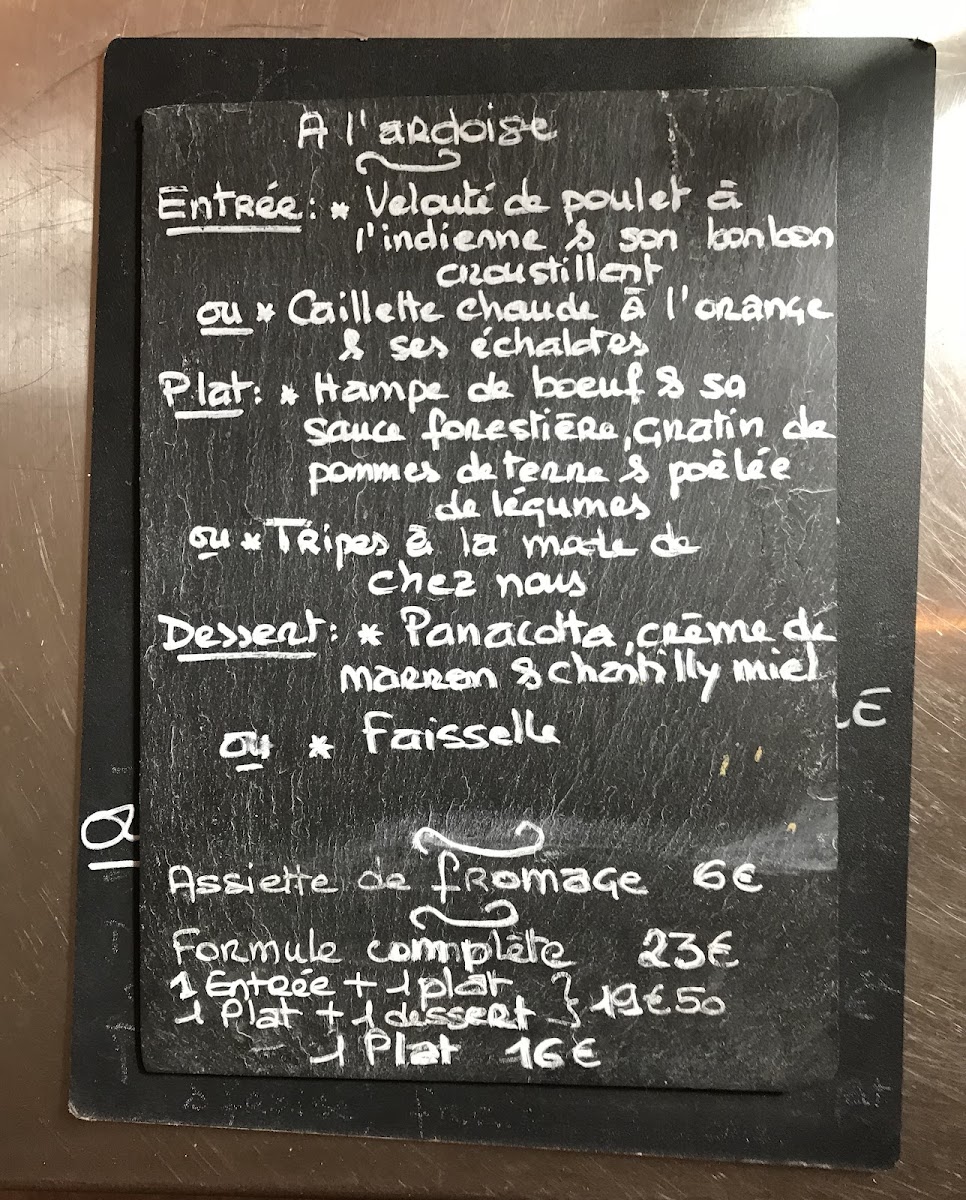 A l'ardoise
Entrée: * Velouté de poulet à
l'indienne & son bonbon
croustillant
ou * Caillette chaude à l'orange
& ses échalotes
Plat: * Hampe de boeuf & sa
sauce forestière, gratin de
pommes de terre & poêlée
de légumes
ou * Tripes à la mode de
chez nous
Dessert: * Panacotta, crème de
marron & chantilly miel
ou * Faisselle
Assiette de fromage 6€
Formule complète 23€
1 Entrée + 1 plat
1 Plat + 1 dessert } 19€50
1 Plat 16€